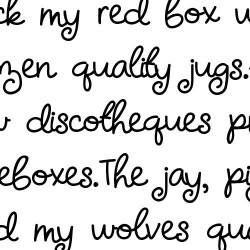 ck my red box w
zen quality jugs.
discotheques p
eboxes. The jay, pi
d my wolves qu